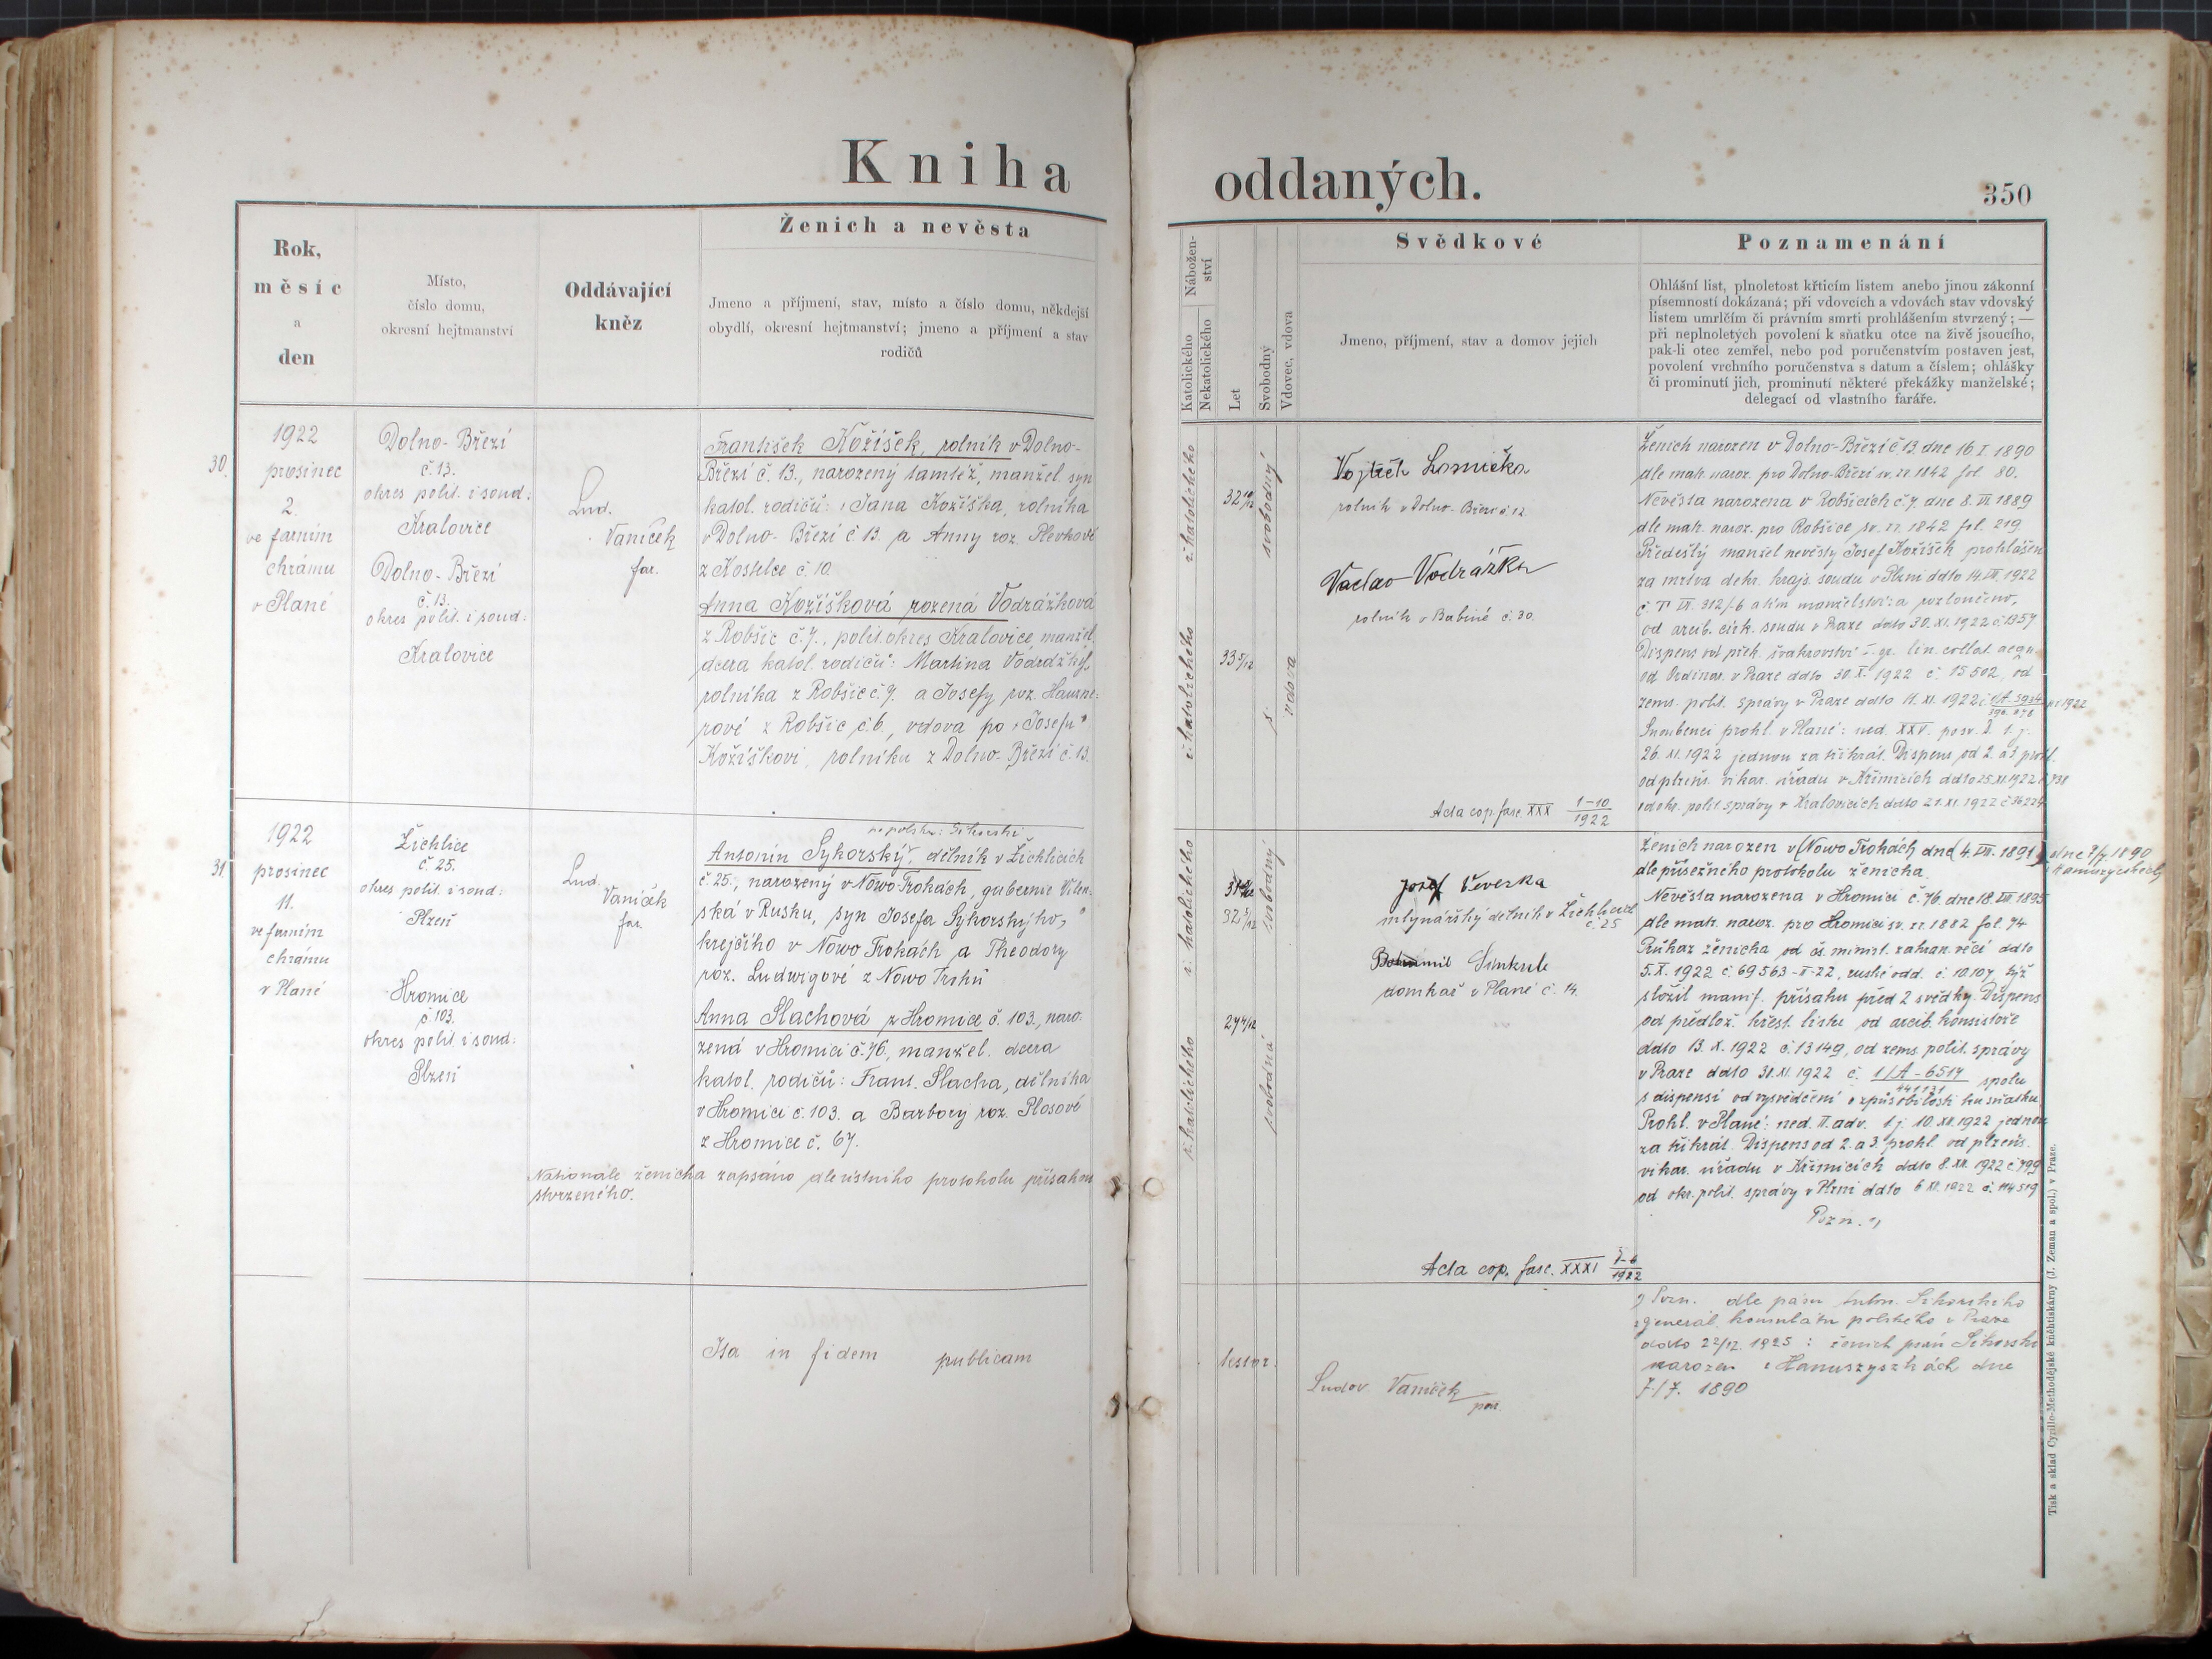 Kniha
oddaných.
350
Rok,
měsíc
a
den
Místo,
číslo domu,
okresní hejtmanství
Oddávající
kněz
Ženich a nevěsta
Jmeno a příjmení, stav, místo a číslo domu, někdejší
obydlí, okresní hejtmanství; jmeno a příjmení a stav
rodičů
Nábožen-
ství
Katolického
Nekatolického
Let
Svobodný
Vdovec, vdova
Svědkové
Jmeno, příjmení, stav a domov jejich
Poznamenání
Ohlášní list, plnoletost křticím listem anebo jinou zákonní
písemností dokázaná; při vdovcích a vdovách stav vdovský
listem umrlčím či právním smrti prohlášením stvrzený; —
při neplnoletých povolení k sňatku otce na živě jsoucího,
pak-li otec zemřel, nebo pod poručenstvím postaven jest,
povolení vrchního poručenstva s datum a číslem; ohlášky
či prominutí jich, prominutí některé překážky manželské;
delegací od vlastního faráře.
30.
1922
prosinec
2.
ve farním
chrámu
v Plané
Dolno-Březí
č. 13.
okres polit. i soud:
Kralovice
Dolno-Březí
č. 13.
okres polit. i soud:
Kralovice
Lud.
Vaníček
far.
František Kožíšek, rolník v Dolno-
Březí č. 13., narozený tamtéž, manžel. syn
katol. rodičů: Jana Kožíška, rolníka
v Dolno-Březí č. 13. a Anny roz.
z Kostelce č. 10.
Anna Kožíšková rozená Vodrážková
z Robšic č. 7., polit. okres Kralovice, manžel.
dcera katol. rodičů: Martina
rolníka z Robšic č. 9. a Josefy roz.
rové z Robšic č. 6., vdova po Josefu
Kožíškovi, rolníku z Dolno-Březí č. 13.
ř. katolického
ř. katolického
32 10/12
33 5/12
svobodný
vdova
Vojtěch
rolník v Dolno-Březí č. 12.
Vaclav Vodrážka
rolník v Babíně č. 30.
Acta cop. fasc. XXX 1-10
1922
Ženich narozen v Dolno-Březí č. 13. dne 16. I. 1890
dle matr. naroz. pro Dolno-Březí sv. 1842 fol. 80.
Nevěsta narozena v Robšicích č. 7. dne 8. VI 1889
dle matr. naroz. pro Robšice sv. 1842 fol. 219.
Předešlý manžel nevěsty Josef Kožíšek prohlášen
za mrtva dekr. krajs. soudu v Plzni ddto 14. 1922
č. 312/6 a tím manželství za rozloučeno,
od arcib. círk. soudu v Praze ddto 30. XI. 1922 č. 1357
Dispens od přek. švakrovství I. gr. lin. collat. aequ.
od Ordinar. v Praze ddto 30. X. 1922 č. 15502, od
zems. polit. správy v Praze ddto 11. XI. 1922 č. 1/A-5934 1922
Snoubenci prohl. v Plané: ned. XXV. po sv. D. t. j.
26. XI. 1922 jednou za třikrát. Dispens od 2. a 3. prohl.
od plzeňs. vikar. úřadu v Křimicích ddto 25. XI. 1922 č. 738
od okr. polit. správy v Kralovicích ddto 21. XI. 1922
31.
1922
prosinec
11.
ve farním
chrámu
v Plané
Žichlice
č. 25.
okres polit. i soud:
Plzeň
Hromice
č. 103.
okres polit. i soud:
Plzeň
Lud.
Vaníček
far.
po polsku: Sikorski
Antonín Sykorský, dělník v Žichlicích
č. 25., narozený v Nowo-Trokách, gubernie Vilen-
ská v Rusku, syn Josefa Sykorského,
krejčího v Nowo Trokách a Theodory
roz. Ludwigové z Nowo Troků
Anna Slachová z Hromice č. 103., naro-
zená v Hromici č. 76, manžel. dcera
katol. rodičů: Frant. Slacha, dělníka
v Hromici č. 103. a Barbory roz. Plosové
z Hromice č. 67.
Nationale ženicha zapsáno dle ústního protokolu přísahou
stvrzeného.
ř. katolického
ř. katolického
32 5/12
27 4/12
svobodný
svobodná
Josef Veverka
mlynářský dělník v Žichlicích
č. 25
Šimkule
domkař v Plané č. 14.
Acta cop. fasc. XXXI 1-6
1922
Ženich narozen v (Nowo Trokách dne (4. VII. 1891) dne 7/7 1890
v Hanuszyszkách
dle přísežního protokolu ženicha.
Nevěsta narozena v Hromici č. 76. dne 18. VIII 1895
dle matr. naroz. pro Hromici sv. 1882 fol. 74
Průkaz ženicha od čs. minist. zahran. věcí ddto
5. X. 1922 č. 69563-I-22, ruské odd. č. 10107, týž
složil manif. přísahu před 2 svědky. Dispens
od předlož. křest. listu od arcib. konsistoře
ddto 13. X. 1922 č. 13149, od zems. polit. správy
v Praze ddto 31. XI. 1922 č. 1/A-6517 spolu
s dispensí od vysvědčení o způsobilosti ku sňatku
Prohl. v Plané: ned. II. adv. t. j. 10. XII. 1922 jednou
za třikrát. Dispens od 2. a 3. prohl. od plzeňs.
vikar. úřadu v Křimicích ddto 8. XII. 1922 č. 799
od okr. polit. správy v Plzni ddto 6 XII. 1922 č. 114519
Pozn.
Ita in fidem publicam
testor.
Ludov. Vaníček
par.
Pozn. dle pasu Anton. Sikorskiho
general. konsulátu polského v Praze
ddto 22/12. 1925: ženich psán Sikorski
narozen v Hanuszyszkách dne
7/7. 1890
Tisk a sklad Cyrillo-Methodějské knihtiskárny (J. Zeman a spol.) v Praze.